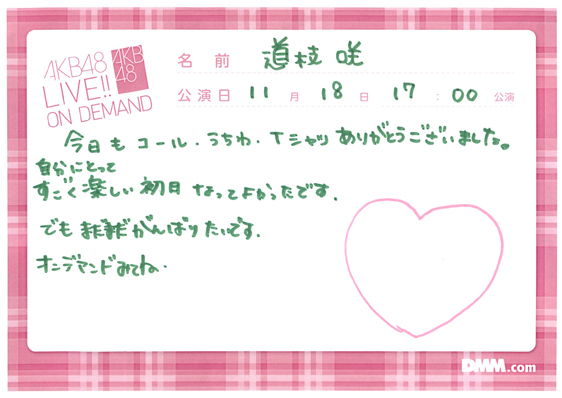 AKB48
LIVE!!
ON DEMAND
AKB
48
名前 道枝 咲
公演日 11月 18日 17:00 公演
今日も コール、うちわ、Tシャツ ありがとうございました。
自分にとって
すごく楽しい初日 なってよかったです。
でも まだまだ がんばりたいです。
オンデマンドみてね。
DMM.com